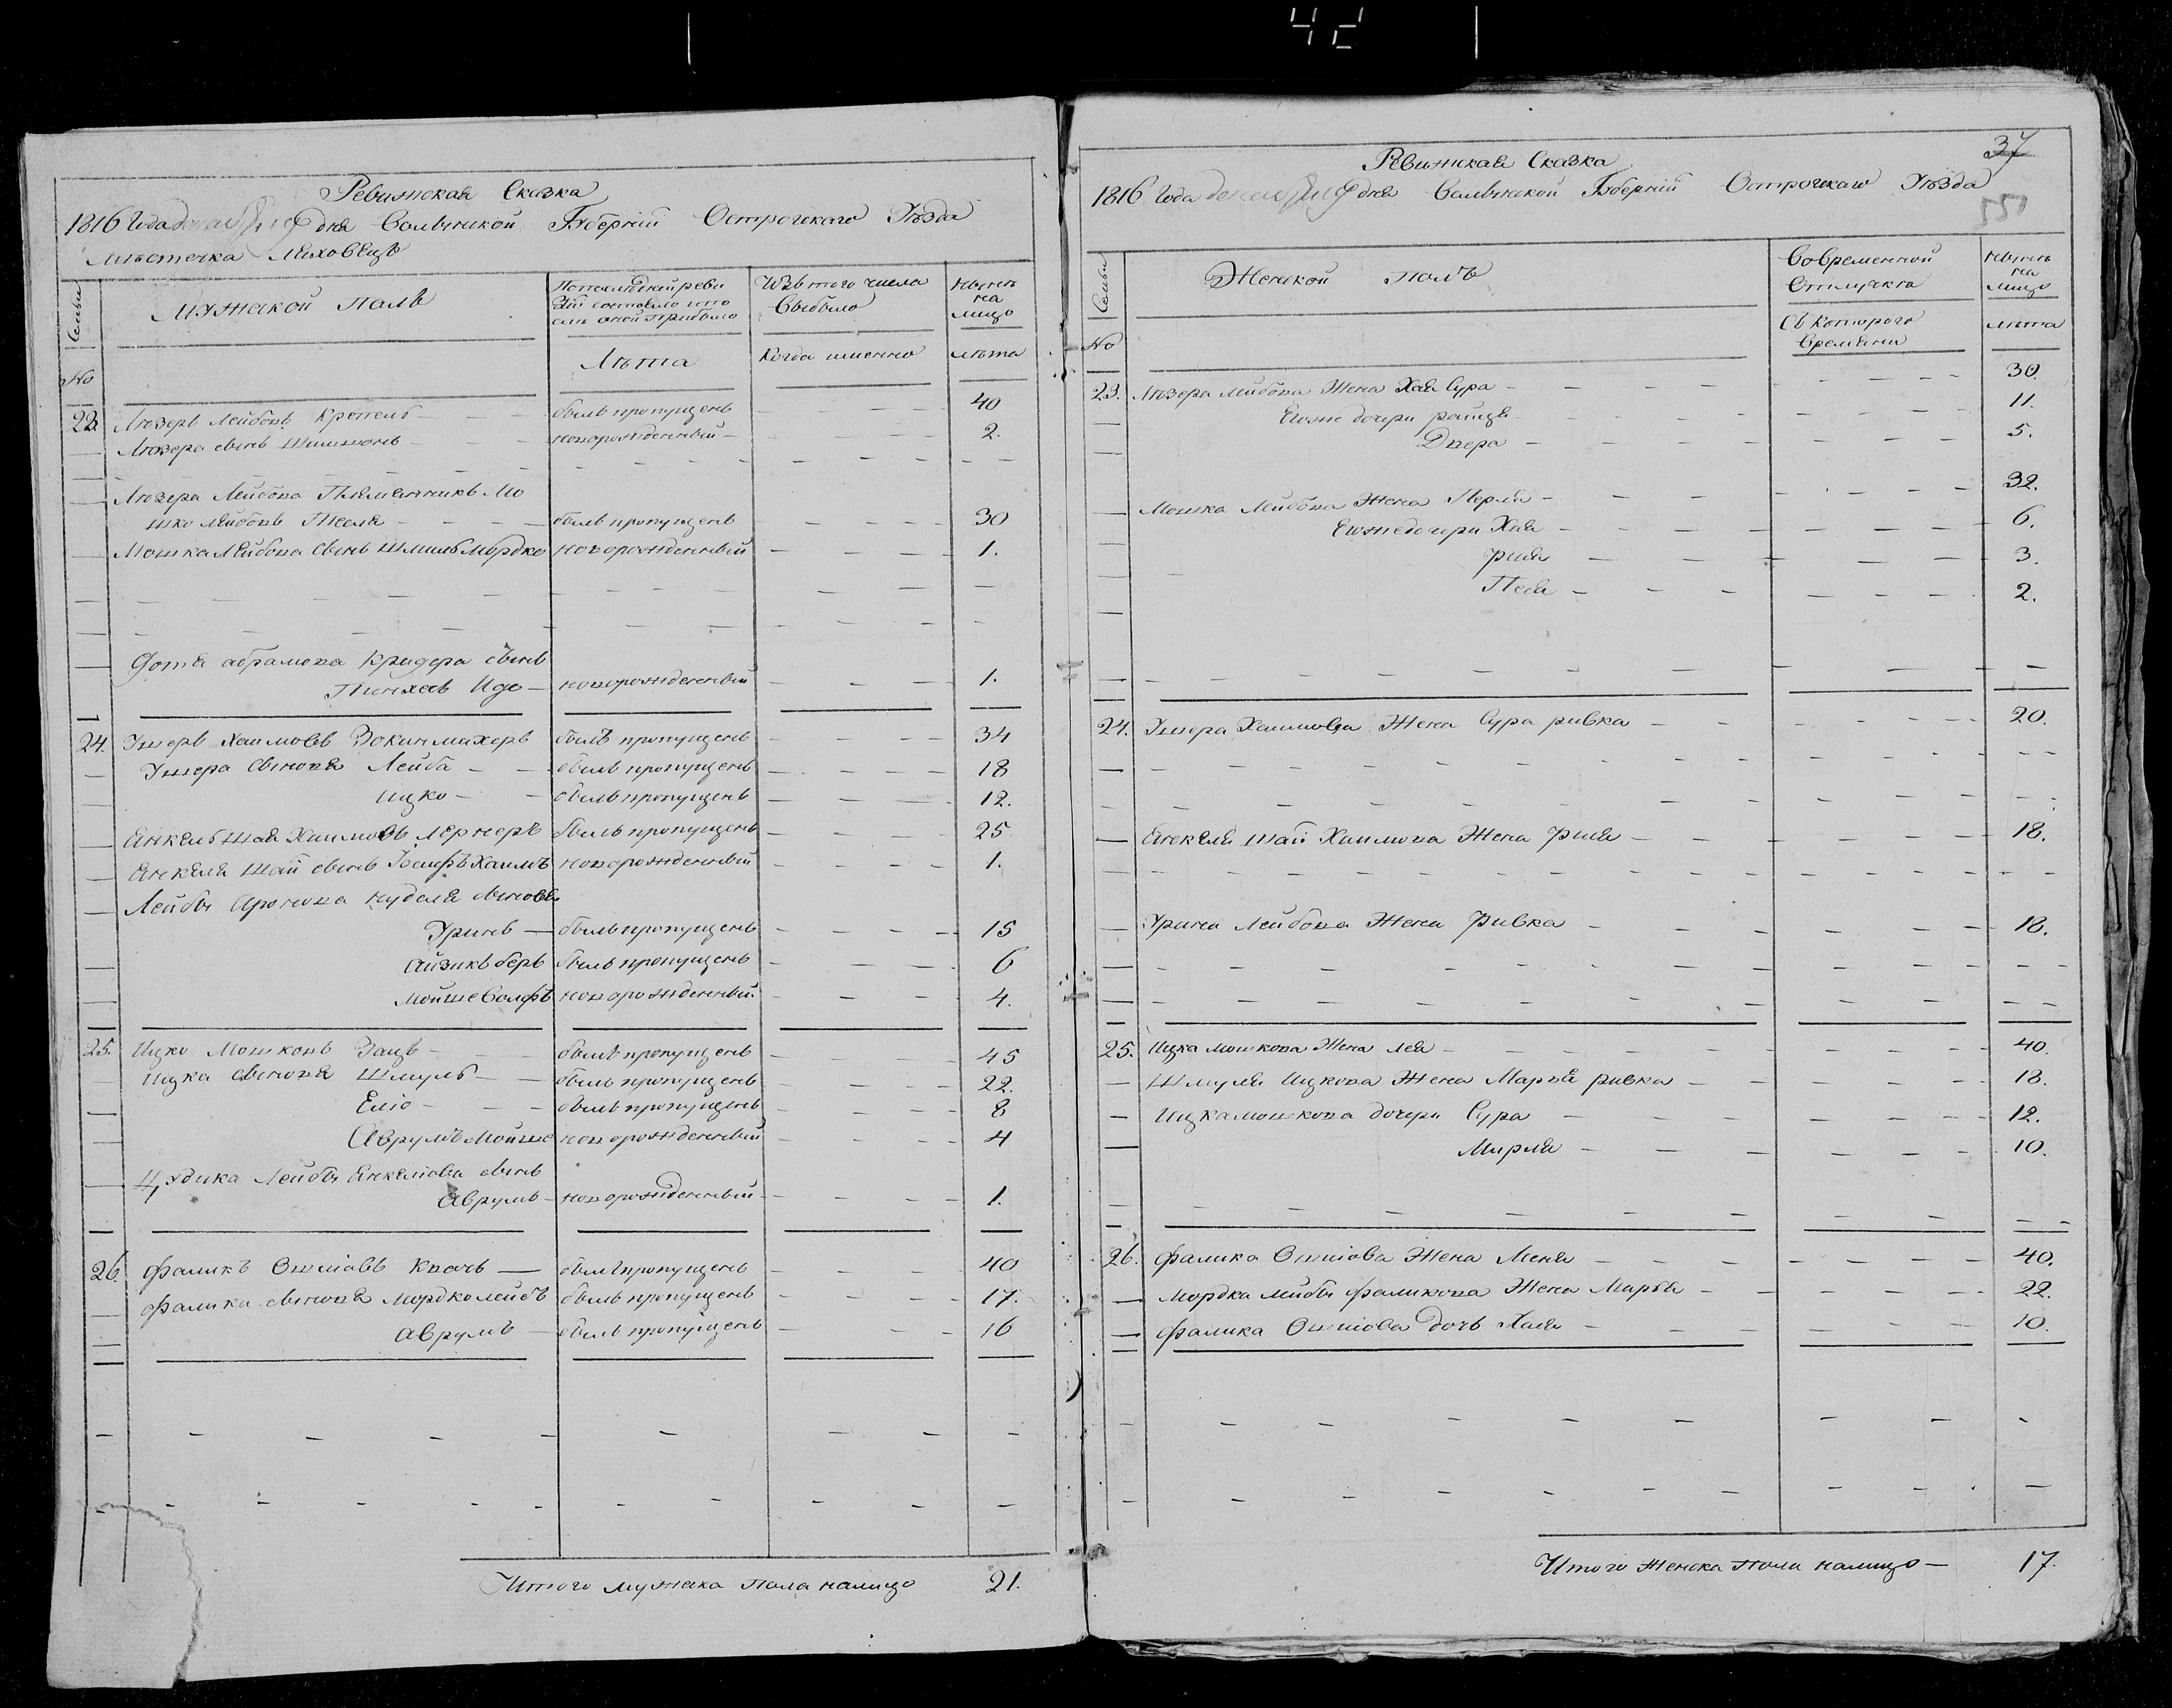 42
Ревижская Сказка
1816 Года дня Волынской Губерніи Острогскаго Уезда
местечка Ляховецъ
Семьи
Мужеской Полъ
По последней реви
зіи состояло и по
сль оной прибыло
Изъ того числа
Выбыло
Ныне
на
лицо
№
Лета
Когда имянно
лета
23. Лѣзеръ Лейбовъ был пропущенъ 40
Лѣзера сынъ Шимшонъ новорожденный 2.
Лѣзера Лейбова Племянникъ Мо
шко Лейбовъ был пропущенъ 30
Мошка Лейбова сынъ Шмиль Мордко новорожденный 1.
абрамова Кридера сынъ
Пинхасъ Идо новорожденный 1.
24. Ушеръ Хаимовъ Зокинмахеръ былъ пропущенъ 34
Ушера Сыновя Лейба былъ пропущенъ 18
Ицко былъ пропущенъ 12.
Янкель Шая Хаимовъ Лернеръ былъ пропущенъ 25
Янкеля Шаи сынъ Хаимъ новорожденный 1.
Лейбы Аронова Нуделя сыновя
Уринъ былъ пропущенъ 15
Айзикъ беръ былъ пропущенъ 6
Мойше Волфъ новорожденный 4.
25. Ицко Мошковъ Заицъ былъ пропущенъ 45
Ицка сыновя Шмуль былъ пропущенъ 22.
Еліо былъ пропущенъ 8
Аврумъ Мойше новорожденный 4
Лейбы Янкеліова сынъ
Аврумъ новорожденный 1.
26. Фаликъ Ошіовъ Квачъ былъ пропущенъ 40
Фалика сыновя Мордко лейбъ былъ пропущенъ 17.
Аврумъ былъ пропущенъ 16
Итого мужска пола налицо 21.
37
Ревижская Сказка
1816 Года дня Волынской Губерніи Острогскаго Уезда
551
Семьи
Женской полъ
Вовременной
Отлучке
Ныне
на
лицо
№
Съ которого
Времяни
лета
23. Лѣзера Лейбова Жена Хая Сура 30.
Его же дочери раица 11.
Двера 5.
Мошка Лейбова Жена Перля 32.
Его же дочери Хая 6.
рися 3.
Песя 2.
24. Ушера Хаимова Жена Сура ривка 20.
Янкеля Шаи Хаимова Жена Рися 18.
Урина Лейбова Жена Ривка 18.
25. Ицка мошкова Жена лея 40.
Шмуля Ицкова Жена Марья ривка 18.
Ицка мошкова дочери Сура 12.
Мирля 10.
26. Фалика Ошіова Жена Меня 40.
Мордка лейбы фаликова Жена Марья 22.
Фалика Ошіова дочь Хая 10.
Итого женска пола налицо 17.